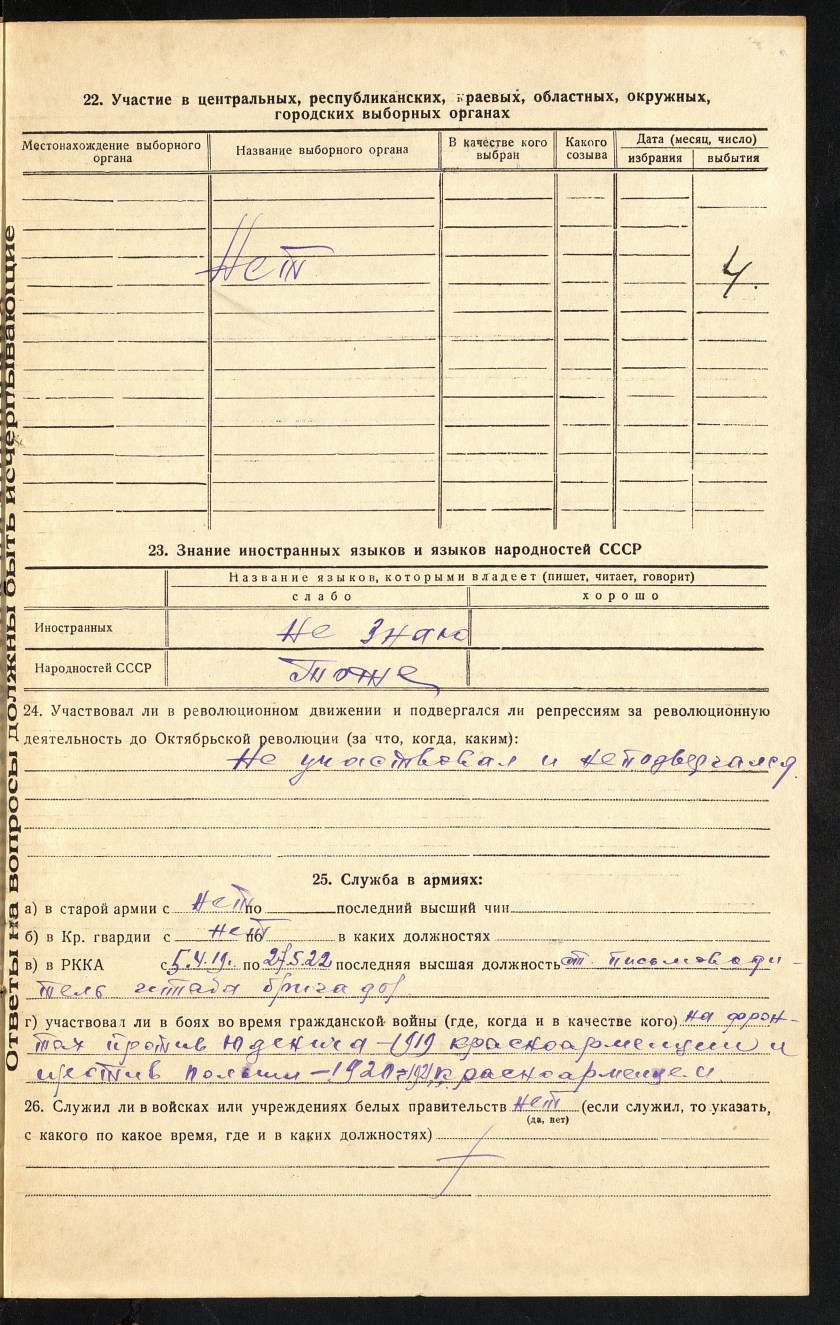 22. Участие в центральных, республиканских, краевых, областных, окружных,
городских выборных органах
Местонахождение выборного органа
Название выборного органа
В качестве кого выбран
Какого созыва
Дата (месяц, число)
избрания
выбытия
Нет
4.
23. Знание иностранных языков и языков народностей СССР
Название языков, которыми владеет (пишет, читает, говорит)
слабо
хорошо
Иностранных
Не знаю
Народностей СССР
Тоже
24. Участвовал ли в революционном движении и подвергался ли репрессиям за революционную
деятельность до Октябрьской революции (за что, когда, каким):
Не участвовал и неподвергался
25. Служба в армиях:
а) в старой армии с нет по последний высший чин
б) в Кр. гвардии с нет по в каких должностях
в) в РККА с 5.4.19. по 27.5.22 последняя высшая должность ст. письмоводи-
тель штаба бригады
г) участвовал ли в боях во время гражданской войны (где, когда и в качестве кого) на фрон-
тах против Юденича - 1919 красноармейцем и
против Польши - 1920-1921 красноармейцем
26. Служил ли в войсках или учреждениях белых правительств нет (если служил, то указать,
(да, нет)
с какого по какое время, где и в каких должностях)
Ответы на вопросы должны быть исчерпывающие